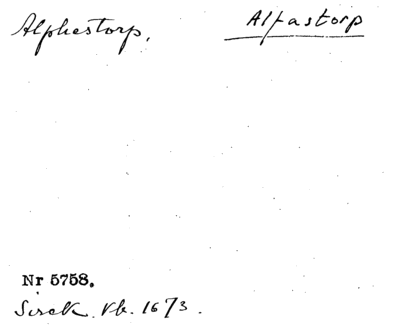 Alphestorp.
Alfastorp
Nr 5758.
Sirek. Vb. 1673.